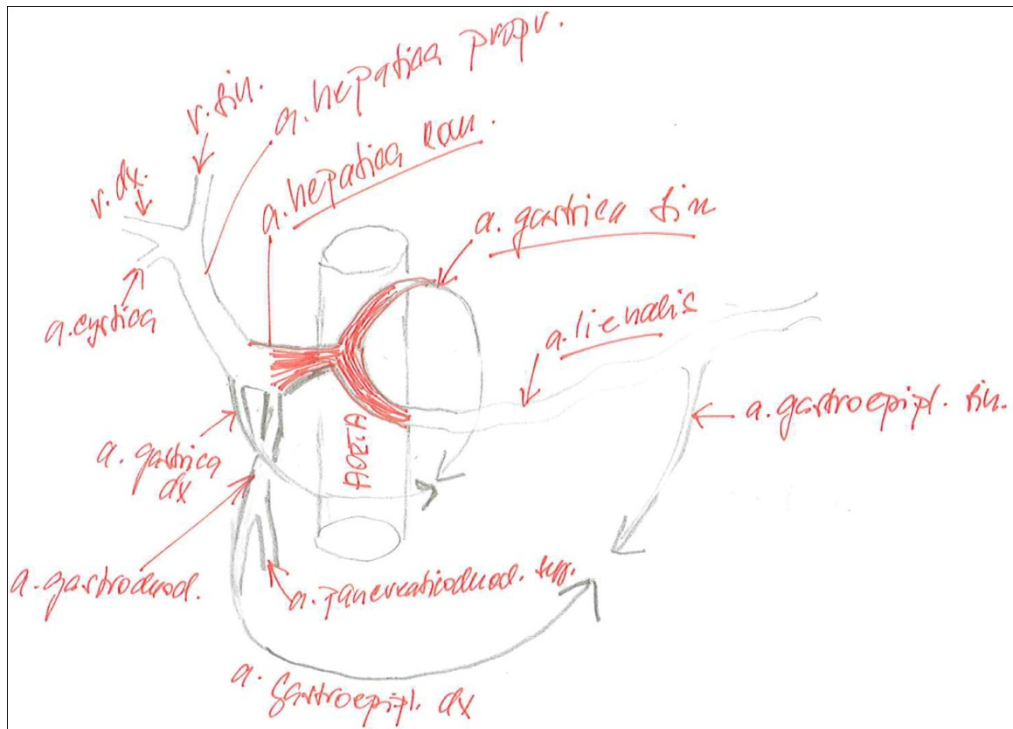 a. hepatica propr.
r. sin.
a. hepatica com.
r. dx.
a. gastrica sin
a. cystica
a. lienalis
a. gastroepipl. sin.
a. gastrica
dx
AORTA
a. gastroduod.
a. pancreaticoduod. sup.
a.
gastroepipl. dx